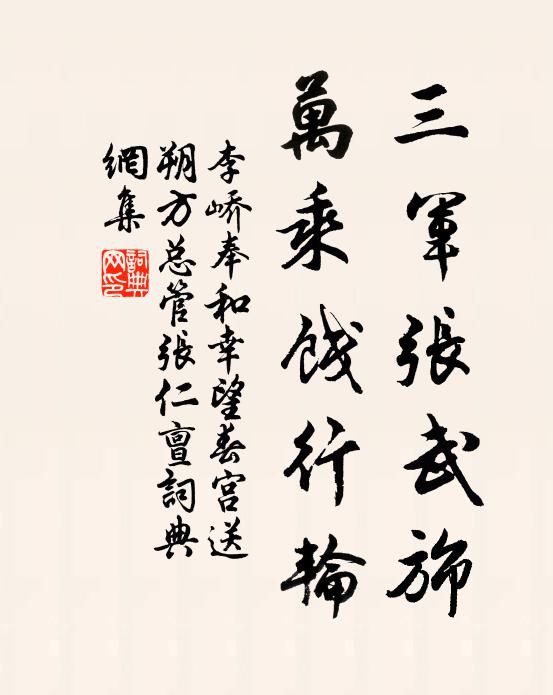 三軍張武旆
萬乘餞行輪
李嶠奉和幸望春宫送
朔方总管張仁亶詞典
網集
詞典
网印